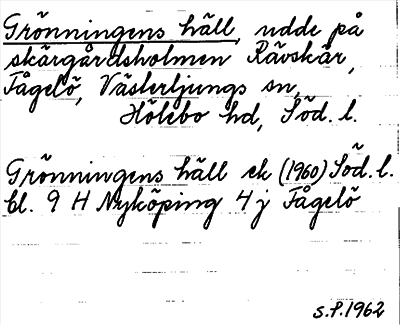 Grönningens häll, udde på
skärgårdsholmen Rävskär,
Fågelö, Västerljungs sn,
Hölebo hd, Söd. l.
Grönningens häll ek (1960) Söd. l.
bl. 9 H Nyköping 4 j Fågelö
S.P. 1962